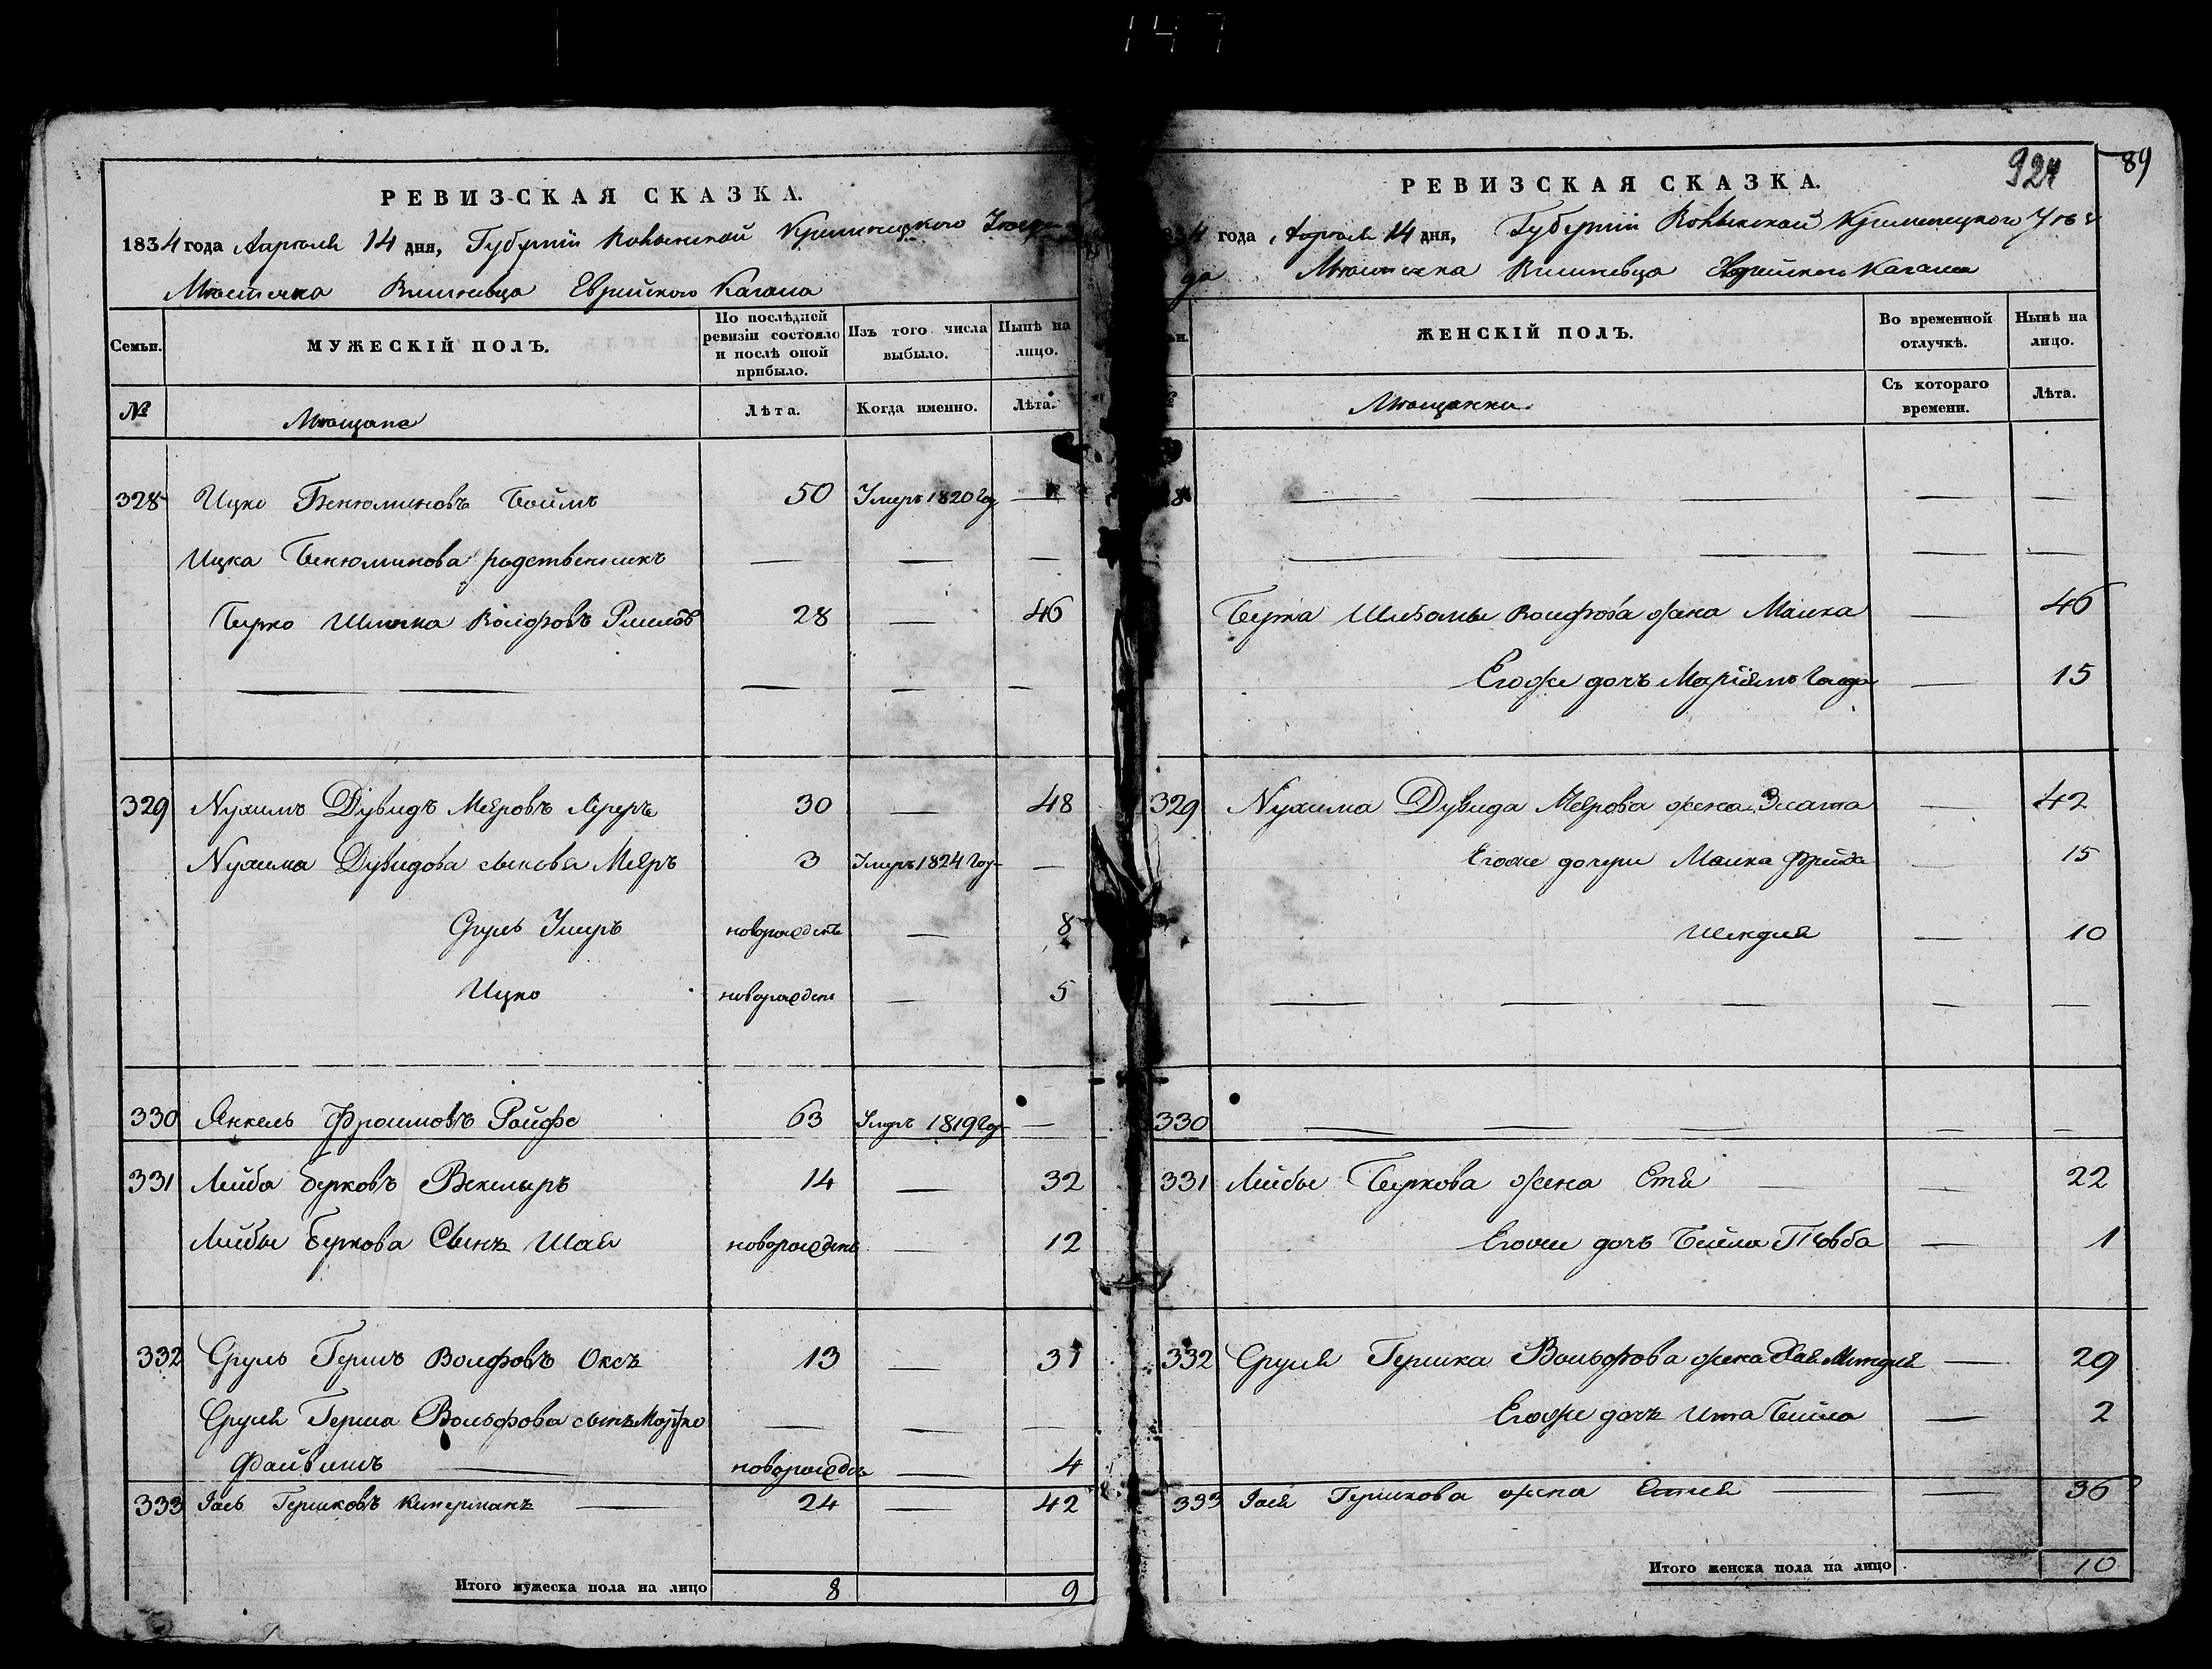 147
РЕВИЗСКАЯ СКАЗКА.
1834 года Апреля 14 дня, Губерніи Волынской Кременецкого
Местечка Вишневца Еврейского Кагала
Семьи. МУЖЕСКІЙ ПОЛЪ. По послѣдней ревизіи состояло и послѣ оной прибыло. Изъ того числа выбыло. Нынѣ на лицо.
№ Мещане Лѣта. Когда именно. Лѣта.
328 Ицко Бенюминовъ Боймъ 50 Умеръ 1820 год —
Ицка Бенюминова родственникъ — — —
Берко Шлиома Волфовъ 28 — 46
— — — — —
329 Нухимъ Дувидъ Меяровъ Лереръ 30 — 48
Нухима Дувидова сыновья Меяръ 3 Умеръ 1824 год —
Сруль Умеръ новорожденъ — 8
Ицко новорожден — 5
330 Янкель Фроимовъ Ройфе 63 Умеръ 1819 год —
331 Лейба Берковъ Векслыръ 14 — 32
Лейбы Беркова Сынъ Шая новорожденъ — 12
332 Сруль Гершъ Волфовъ Оксъ 13 — 31
Сруля Герша Вольфова сынъ Мошко — — —
Файвишъ — новорожден — 4
333 Іось Гершковъ Кимерманъ — 24 — 42
Итого мужеска пола на лицо 8 9
924 89
РЕВИЗСКАЯ СКАЗКА.
34 года Апреля 14 дня, Губерніи Волынской Кременецкого Уез
да Местечка Вишневца Еврейского Кагала
ьи. ЖЕНСКІЙ ПОЛЪ. Во временной отлучкѣ. Нынѣ на лицо.
№ Мещанки. Съ котораго времени. Лѣта.
8 — — — — —
— — — — —
Берка Шлиомы Волфова жена Малка — 46
Егоже дочь Маріямъ Голда — 15
329 Нухима Дувида Меярова жена Злата — 42
Егоже дочери Малка Фрейда — 15
Шендля — 10
— — — — —
330 — — — — —
331 Лейбы Беркова жена Етя — — 22
Егоже дочь Бейла 1
332 Сруля Гершка Вольфова жена Хая Миндля — 29
Егоже дочь Ита Бейла — 2
333 Іося Гершкова жена Етля — — 36
Итого женска пола на лицо 10